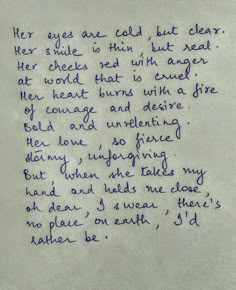 Her eyes are cold, but clear.
Her smile is thin, but real.
Her cheeks red with anger
at world that is cruel.
Her heart burns with a fire
of courage and desire.
Bold and unrelenting.
Her love, so fierce
stormy, unforgiving.
But, when she takes my
hand and holds me close,
oh dear, I swear, there's
no place, on earth, I'd
rather be.